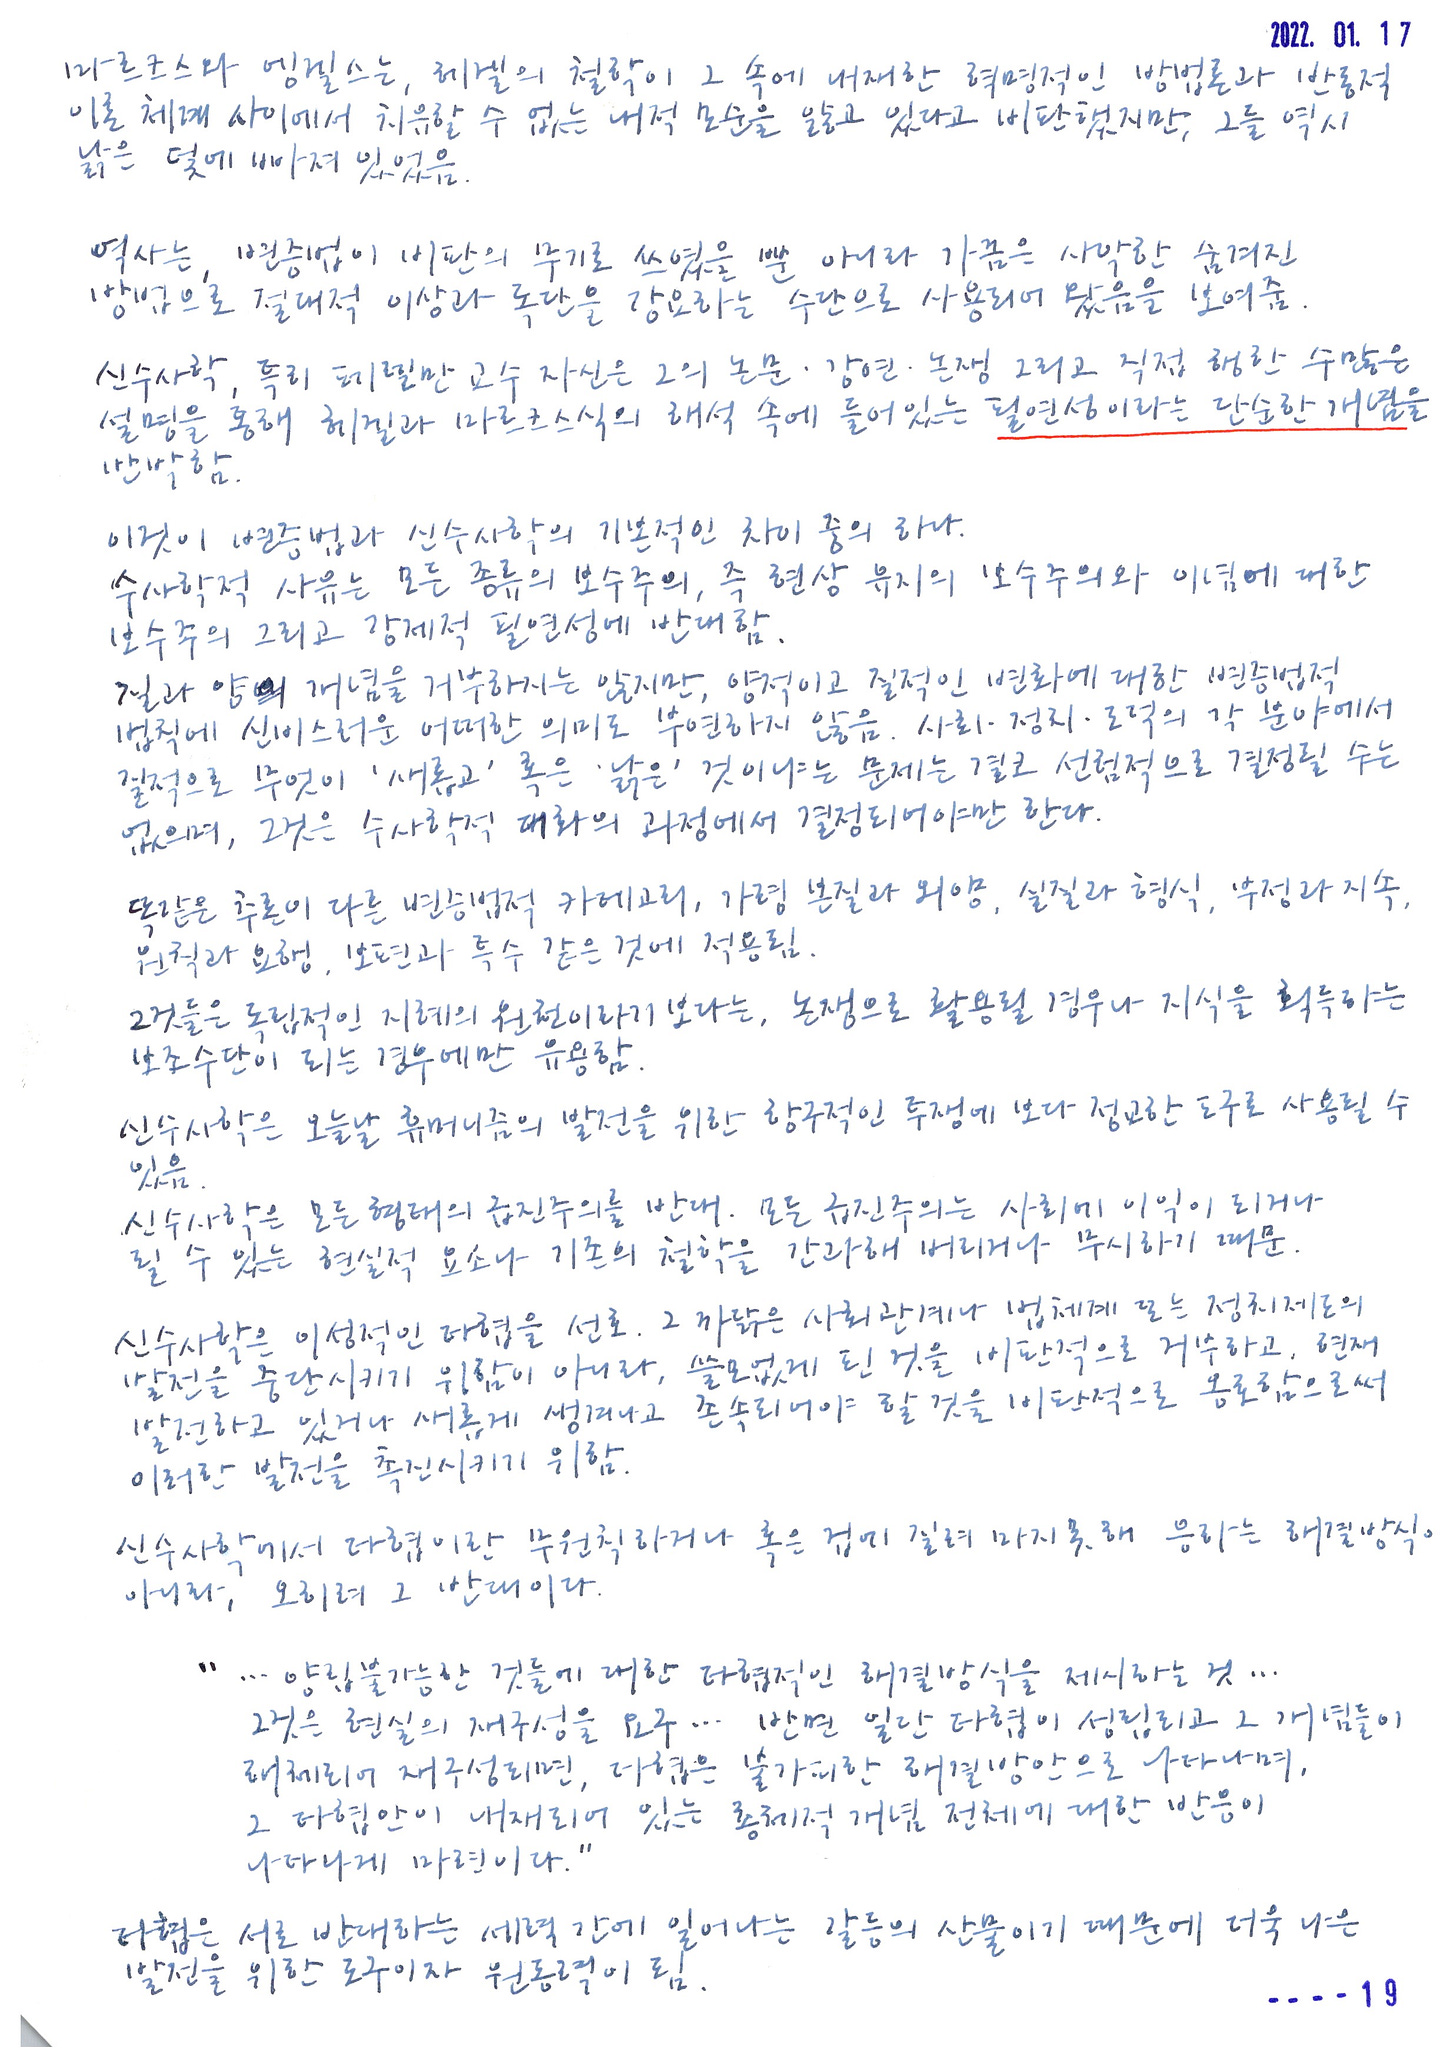 2022. 01. 17
마르크스와 엥겔스는, 헤겔의 철학이 그 속에 내재한 혁명적인 방법론과 반동적
이론 체계 사이에서 치유할 수 없는 내적 모순을 앓고 있다고 비판했지만, 그들 역시
낡은 덫에 빠져 있었음.
역사는, 변증법이 비판의 무기로 쓰였을 뿐 아니라 가끔은 사악한 숨겨진
방법으로 절대적 이상과 독단을 강요하는 수단으로 사용되어 왔음을 보여줌.
신수사학, 특히 페렐만 교수 자신은 그의 논문·강연·논쟁 그리고 직접 행한 수많은
설명을 통해 헤겔과 마르크스식의 해석 속에 들어있는 필연성이라는 단순한 개념을
반박함.
이것이 변증법과 신수사학의 기본적인 차이 중의 하나.
수사학적 사유는 모든 종류의 보수주의, 즉 현상 유지의 보수주의와 이념에 대한
보수주의 그리고 강제적 필연성에 반대함.
질과 양의 개념을 거부하지는 않지만, 양적이고 질적인 변화에 대한 변증법적
법칙에 신비스러운 어떠한 의미도 부연하지 않음. 사회·정치·도덕의 각 분야에서
질적으로 무엇이 '새롭고' 혹은 '낡은' 것이냐는 문제는 결코 선험적으로 결정될 수는
없으며, 그것은 수사학적 대화의 과정에서 결정되어야만 한다.
똑같은 추론이 다른 변증법적 카테고리, 가령 본질과 외양, 실질과 형식, 부정과 지속,
원칙과 요행, 보편과 특수 같은 것에 적용됨.
그것들은 독립적인 지혜의 원천이라기보다는, 논쟁으로 활용될 경우나 지식을 획득하는
보조수단이 되는 경우에만 유용함.
신수사학은 오늘날 휴머니즘의 발전을 위한 항구적인 투쟁에 보다 정교한 도구로 사용될 수
있음.
신수사학은 모든 형태의 급진주의를 반대. 모든 급진주의는 사회에 이익이 되거나
될 수 있는 현실적 요소나 기존의 철학을 간과해 버리거나 무시하기 때문.
신수사학은 이성적인 타협을 선호. 그 까닭은 사회관계나 법체계 또는 정치제도의
발전을 중단시키기 위함이 아니라, 쓸모없게 된 것을 비판적으로 거부하고, 현재
발전하고 있거나 새롭게 생겨나고 존속되어야 할 것을 비판적으로 옹호함으로써
이러한 발전을 촉진시키기 위함.
신수사학에서 타협이란 무원칙하거나 혹은 겁에 질려 마지못해 응하는 해결방식이
아니라, 오히려 그 반대이다.
" … 양립불가능한 것들에 대한 타협적인 해결방식을 제시하는 것 …
그것은 현실의 재구성을 요구 … 반면 일단 타협이 성립되고 그 개념들이
해체되어 재구성되면, 타협은 불가피한 해결방안으로 나타나며,
그 타협안이 내재되어 있는 총체적 개념 전체에 대한 반응이
나타나게 마련이다."
타협은 서로 반대하는 세력 간에 일어나는 갈등의 산물이기 때문에 더욱 나은
발전을 위한 도구이자 원동력이 됨.
----19